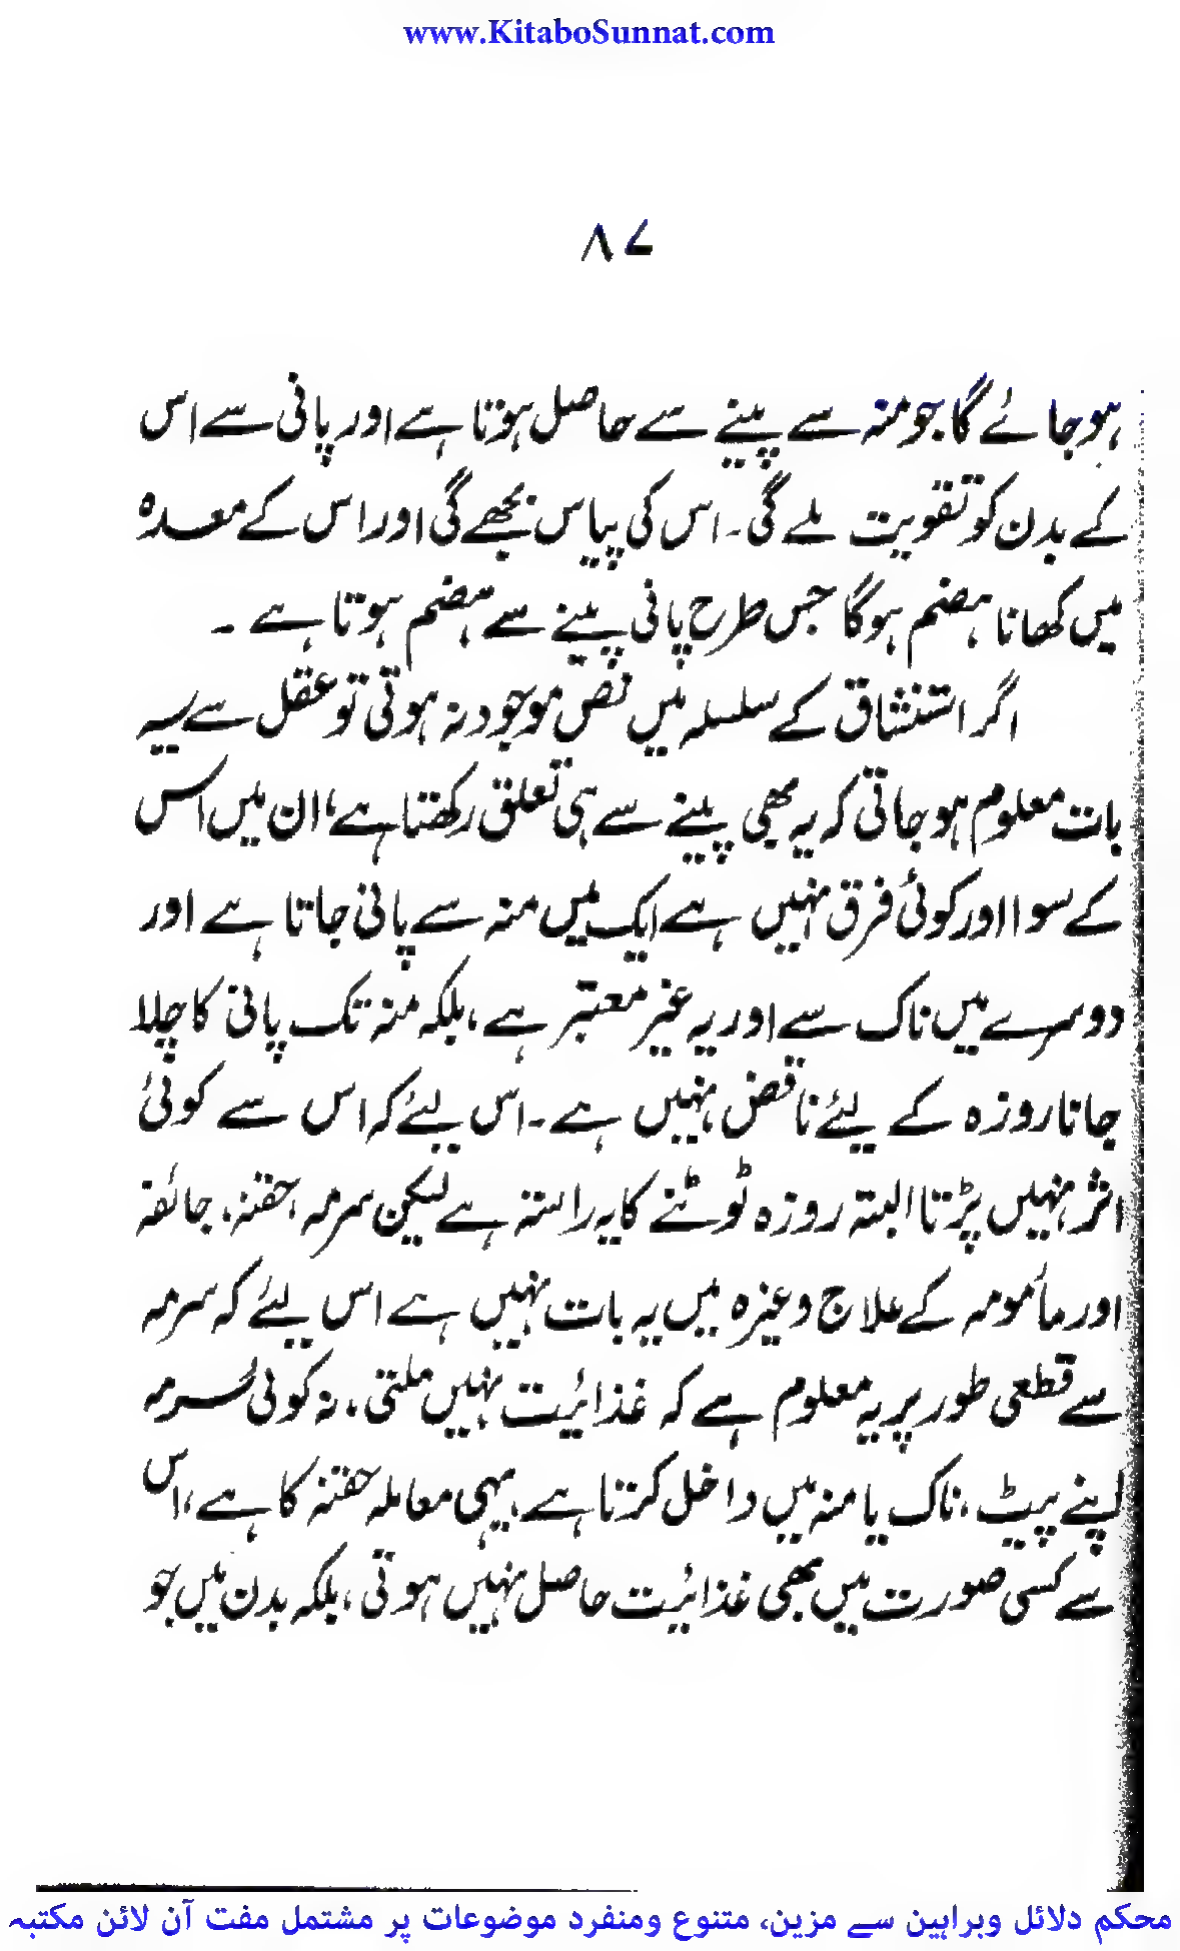 www.KitaboSunnat.com
۸۷
ہوجائے گا جو منہ سے پینے سے حاصل ہوتا ہے اور پانی سے اس
کے بدن کو تقویت ملے گی۔ اس کی پیاس بجھے گی اور اس کے معدہ
میں کھانا ہضم ہوگا جس طرح پانی پینے سے ہضم ہوتا ہے ۔
اگر استنشاق کے سلسلہ میں نص موجود نہ ہوتی تو عقل سے یہ
بات معلوم ہو جاتی کہ یہ بھی پینے سے ہی تعلق رکھتا ہے، ان میں اس
کے سوا اور کوئی فرق نہیں ہے ایک میں منہ سے پانی جاتا ہے اور
دوسرے میں ناک سے اور یہ غیر معتبر ہے، بلکہ منہ تک پانی کا چلا
جانا روزہ کے لیئے ناقض نہیں ہے۔ اس لیئے کہ اس سے کوئی
اثر نہیں پڑتا البتہ روزہ ٹوٹنے کا یہ راستہ ہے لیکن سرمہ، حقنہ، جائفہ
اور مأمومہ کے علاج وغیرہ میں یہ بات نہیں ہے اس لیئے کہ سرمہ
سے قطعی طور پر یہ معلوم ہے کہ غذائیت نہیں ملتی، نہ کوئی سُرمہ
اپنے پیٹ، ناک یا منہ میں داخل کرتا ہے، یہی معاملہ حقنہ کا ہے، اس
سے کسی صورت میں بھی غذائیت حاصل نہیں ہوتی، بلکہ بدن میں جو
محکم دلائل وبراہین سے مزین، متنوع ومنفرد موضوعات پر مشتمل مفت آن لائن مکتبہ